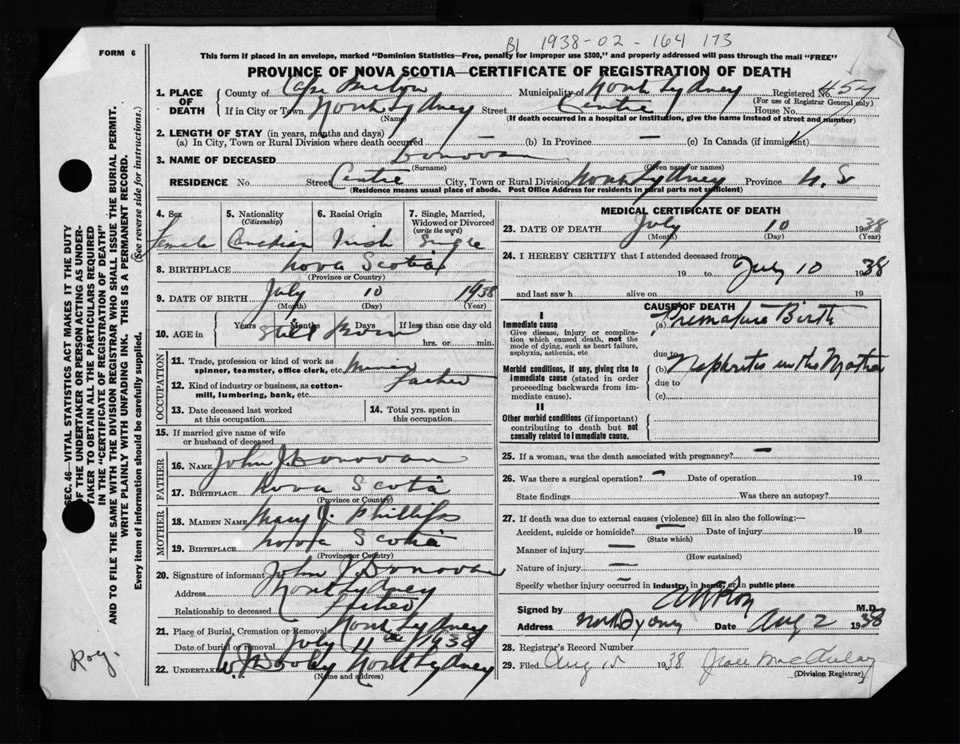 B1 1938-02-164 173
FORM 6
This form if placed in an envelope, marked "Dominion Statistics—Free, penalty for improper use $300," and properly addressed will pass through the mail "FREE"
PROVINCE OF NOVA SCOTIA—CERTIFICATE OF REGISTRATION OF DEATH
1. PLACE OF DEATH County of Cape Breton Municipality of North Sydney Registered No.
(For use of Registrar General only)
If in City or Town North Sydney Street Centre House No.
(Name) (If death occurred in a hospital or institution, give the name instead of street and number)
2. LENGTH OF STAY (in years, months and days)
(a) In City, Town or Rural Division where death occurred (b) In Province — (c) In Canada (if immigrant)
3. NAME OF DECEASED Donovan —
(Surname) (Given name or names)
RESIDENCE No. Street Centre City, Town or Rural Division North Sydney Province N. S
(Residence means usual place of abode. Post Office Address for residents in rural parts not sufficient)
4. Sex Female
5. Nationality (Citizenship) Canadian
6. Racial Origin Irish
7. Single, Married, Widowed or Divorced (write the word) Single
8. BIRTHPLACE Nova Scotia
(Province or Country)
9. DATE OF BIRTH July 10 1938
(Month) (Day) (Year)
10. AGE in Years Months Days If less than one day old
Still Born hrs. or min.
OCCUPATION
11. Trade, profession or kind of work as spinner, teamster, office clerk, etc.
12. Kind of industry or business, as cotton-mill, lumbering, bank, etc. Father
13. Date deceased last worked at this occupation
14. Total yrs. spent in this occupation
15. If married give name of wife or husband of deceased
FATHER
16. NAME John J. Donovan
17. BIRTHPLACE Nova Scotia
(Province or Country)
MOTHER
18. MAIDEN NAME Mary J. Phillips
19. BIRTHPLACE Nova Scotia
(Province or Country)
20. Signature of informant John J. Donovan
Address North Sydney
Relationship to deceased Father
21. Place of Burial, Cremation or Removal North Sydney
Date of burial or removal July 11th 1938
22. UNDERTAKER W. J. Dooley North Sydney
(Name and address)
MEDICAL CERTIFICATE OF DEATH
23. DATE OF DEATH July 10 1938
(Month) (Day) (Year)
24. I HEREBY CERTIFY that I attended deceased from
19 to July 10 1938
and last saw h alive on 19
CAUSE OF DEATH
I
Immediate cause (a) Premature Birth
Give disease, injury or complication which caused death, not the mode of dying, such as heart failure, asphyxia, asthenia, etc
due to
Morbid conditions, if any, giving rise to immediate cause (stated in order proceeding backwards from immediate cause). (b) Nephritis in the Mother
due to
(c)
II
Other morbid conditions (if important) contributing to death but not causally related to immediate cause.
25. If a woman, was the death associated with pregnancy? —
26. Was there a surgical operation? — Date of operation 19
State findings Was there an autopsy?
27. If death was due to external causes (violence) fill in also the following:—
Accident, suicide or homicide? — Date of injury 19
(State which)
Manner of injury —
(How sustained)
Nature of injury —
Specify whether injury occurred in industry, in home, or in public place
Signed by M.D.
Address North Sydney Date Aug 2 1938
28. Registrar's Record Number
29. Filed Aug 15 1938
(Division Registrar)
SEC. 46—VITAL STATISTICS ACT MAKES IT THE DUTY OF THE UNDERTAKER OR PERSON ACTING AS UNDERTAKER TO OBTAIN ALL THE PARTICULARS REQUIRED IN THE "CERTIFICATE OF REGISTRATION OF DEATH" AND TO FILE THE SAME WITH THE DIVISION REGISTRAR WHO SHALL ISSUE THE BURIAL PERMIT.
WRITE PLAINLY WITH UNFADING INK. THIS IS A PERMANENT RECORD.
Every item of information should be carefully supplied. (See reverse side for instructions.)
Roy.